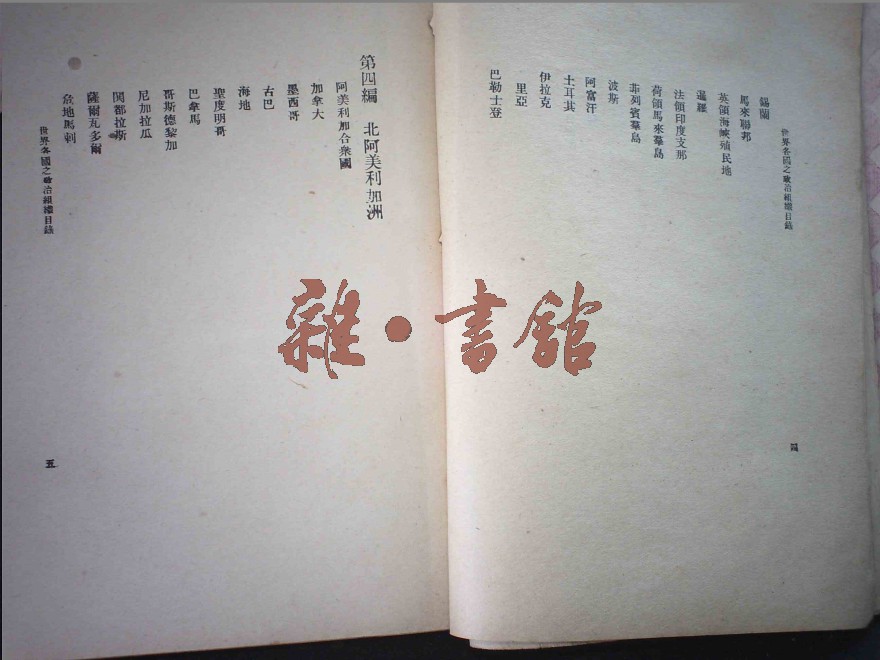 世界各國之政治組織目錄
錫蘭
馬來聯邦
英領海峽殖民地
暹羅
法領印度支那
荷領馬來羣島
菲列賓羣島
波斯
阿富汗
土耳其
伊拉克
里亞
巴勒士登
四
第四編 北阿美利加洲
阿美利加合衆國
加拿大
墨西哥
古巴
海地
聖度明哥
巴拿馬
哥斯德黎加
尼加拉瓜
閎都拉斯
薩爾瓦多爾
危地馬剌
世界各國之政治組織目錄
五
雜·書館